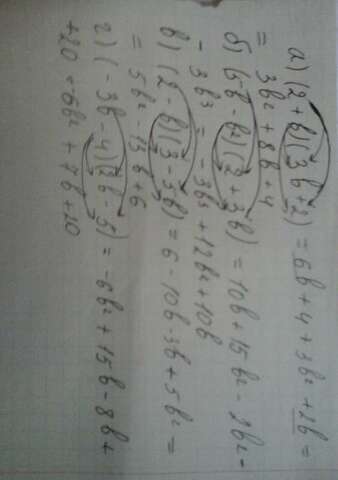 а) (2 + b)(3b + 2) = 6b + 4 + 3b² + 2b =
= 3b² + 8b + 4
б) (5b - b²)(2 + 3b) = 10b + 15b² - 2b² -
- 3b³ = -3b³ + 12b² + 10b
в) (2 - b)(3 - 5b) = 6 - 10b - 3b + 5b² =
= 5b² - 13b + 6
г) (-3b - 4)(2b - 5) = -6b² + 15b - 8b +
+20 = -6b² + 7b + 20